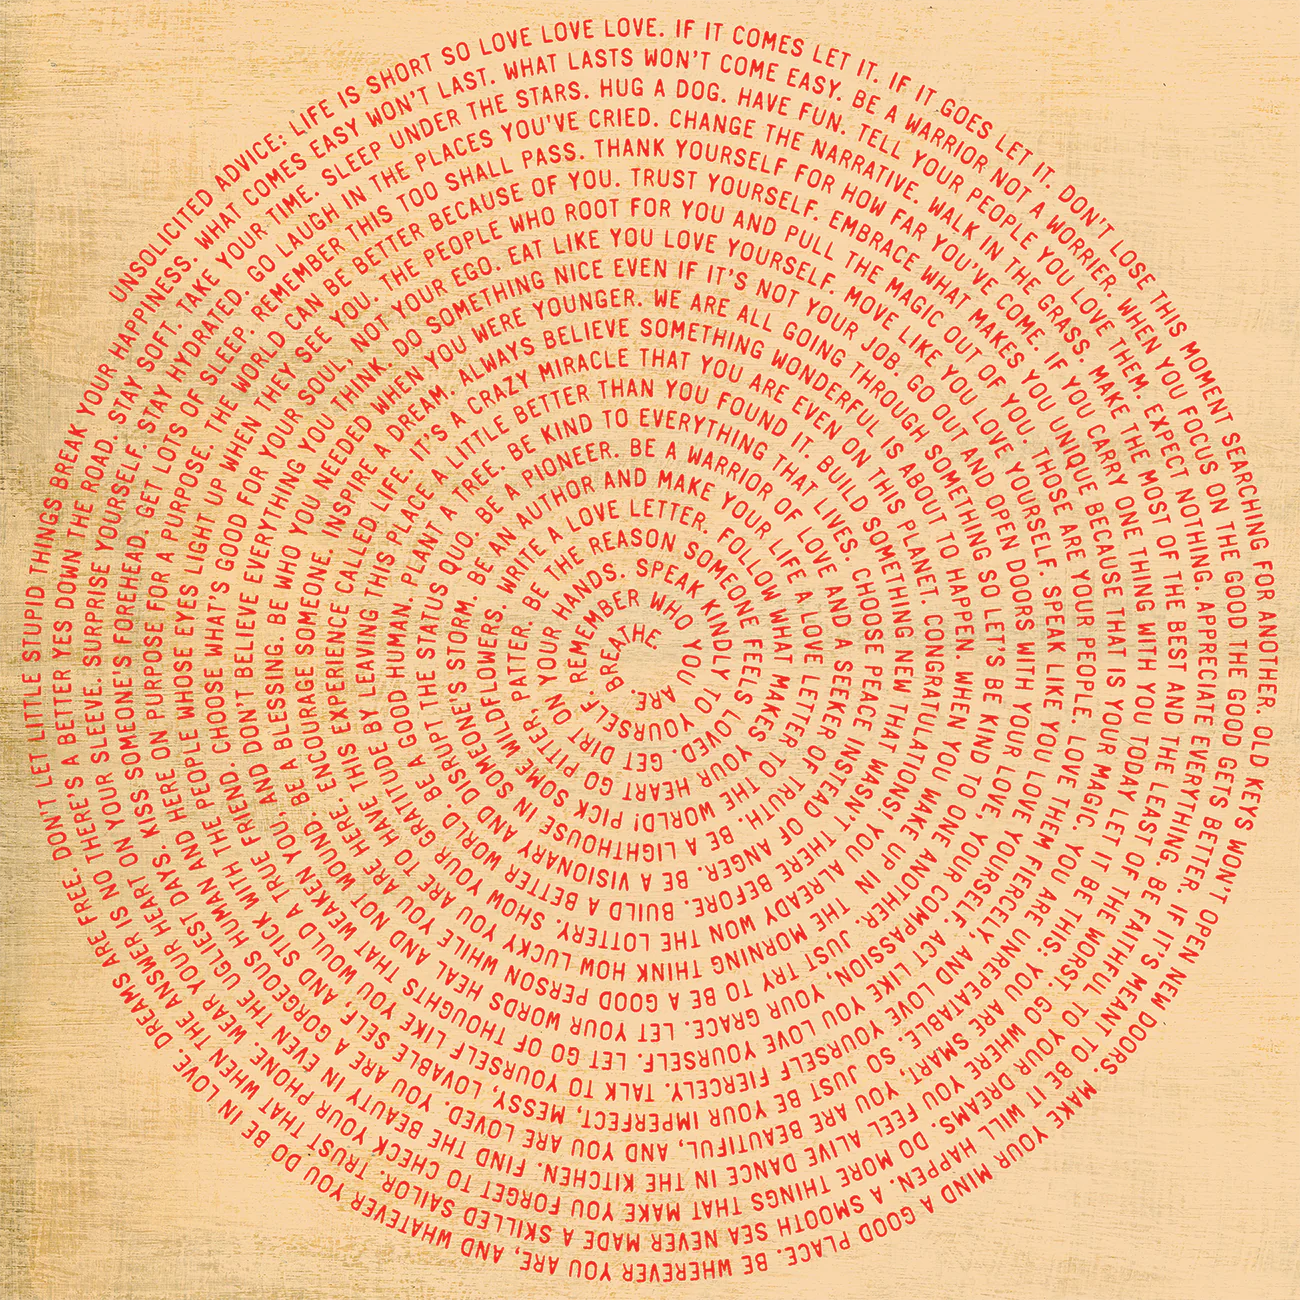 UNSOLICITED ADVICE: LIFE IS SHORT SO LOVE LOVE LOVE. IF IT COMES LET IT. IF IT GOES LET IT. DON'T LOSE THIS MOMENT SEARCHING FOR ANOTHER. OLD KEYS WON'T OPEN NEW DOORS. MAKE YOUR MIND A GOOD PLACE. BE WHEREVER YOU ARE, AND WHATEVER YOU DO BE IN LOVE. DREAMS ARE FREE. DON'T LET LITTLE STUPID THINGS BREAK YOUR HAPPINESS. WHAT COMES EASY WON'T LAST. WHAT LASTS WON'T COME EASY. BE A WARRIOR NOT A WORRIER. WHEN YOU FOCUS ON THE GOOD THE GOOD GETS BETTER. IF IT'S MEANT TO BE IT WILL HAPPEN. A SMOOTH SEA NEVER MADE A SKILLED SAILOR. TRUST THAT WHEN THE ANSWER IS NO THERE'S A BETTER YES DOWN THE ROAD. STAY SOFT. TAKE YOUR TIME. SLEEP UNDER THE STARS. HUG A DOG. HAVE FUN. TELL YOUR PEOPLE YOU LOVE THEM. EXPECT NOTHING. APPRECIATE EVERYTHING. BE FAITHFUL TO YOUR DREAMS. DO MORE THINGS THAT MAKE YOU FORGET TO CHECK YOUR PHONE. WEAR YOUR HEART ON YOUR SLEEVE. SURPRISE YOURSELF. STAY HYDRATED. GO LAUGH IN THE PLACES YOU'VE CRIED. CHANGE THE NARRATIVE. WALK IN THE GRASS. MAKE THE MOST OF THE BEST AND THE LEAST OF THE WORST. GO WHERE YOU FEEL ALIVE DANCE IN THE KITCHEN. FIND THE BEAUTY IN EVEN THE UGLIEST DAYS. KISS SOMEONE'S FOREHEAD. GET LOTS OF SLEEP. REMEMBER THIS TOO SHALL PASS. THANK YOURSELF FOR HOW FAR YOU'VE COME. IF YOU CARRY ONE THING WITH YOU TODAY LET IT BE THIS: YOU ARE SMART, YOU ARE BEAUTIFUL, AND YOU ARE LOVED. YOU ARE A GORGEOUS HUMAN AND HERE ON PURPOSE FOR A PURPOSE. THE WORLD CAN BE BETTER BECAUSE OF YOU. TRUST YOURSELF. EMBRACE WHAT MAKES YOU UNIQUE BECAUSE THAT IS YOUR MAGIC. YOU ARE UNREPEATABLE. SO JUST BE YOUR IMPERFECT, MESSY, LOVABLE SELF, AND STICK WITH THE PEOPLE WHOSE EYES LIGHT UP WHEN THEY SEE YOU. THE PEOPLE WHO ROOT FOR YOU AND PULL THE MAGIC OUT OF YOU. THOSE ARE YOUR PEOPLE. LOVE THEM FIERCELY, AND LOVE YOURSELF FIERCELY. TALK TO YOURSELF LIKE YOU WOULD A TRUE FRIEND. CHOOSE WHAT'S GOOD FOR YOUR SOUL, NOT YOUR EGO. EAT LIKE YOU LOVE YOURSELF. MOVE LIKE YOU LOVE YOURSELF. SPEAK LIKE YOU LOVE YOURSELF. ACT LIKE YOU LOVE YOURSELF. LET GO OF THOUGHTS THAT WEAKEN YOU, AND DON'T BELIEVE EVERYTHING YOU THINK. DO SOMETHING NICE EVEN IF IT'S NOT YOUR JOB. GO OUT AND OPEN DOORS WITH YOUR LOVE, YOUR COMPASSION, YOUR GRACE. LET YOUR WORDS HEAL AND NOT WOUND. BE A BLESSING. BE WHO YOU NEEDED WHEN YOU WERE YOUNGER. WE ARE ALL GOING THROUGH SOMETHING SO LET'S BE KIND TO ONE ANOTHER. JUST TRY TO BE A GOOD PERSON WHILE YOU ARE HERE. ENCOURAGE SOMEONE. INSPIRE A DREAM. ALWAYS BELIEVE SOMETHING WONDERFUL IS ABOUT TO HAPPEN. WHEN YOU WAKE UP IN THE MORNING THINK HOW LUCKY YOU ARE TO HAVE THIS EXPERIENCE CALLED LIFE. IT'S A CRAZY MIRACLE THAT YOU ARE EVEN ON THIS PLANET. CONGRATULATIONS! YOU ALREADY WON THE LOTTERY. SHOW YOUR GRATITUDE BY LEAVING THIS PLACE A LITTLE BETTER THAN YOU FOUND IT. BUILD SOMETHING NEW THAT WASN'T THERE BEFORE. BUILD A BETTER WORLD. BE A GOOD HUMAN. PLANT A TREE. BE KIND TO EVERYTHING THAT LIVES. CHOOSE PEACE INSTEAD OF ANGER. BE A VISIONARY AND DISRUPT THE STATUS QUO. BE A PIONEER. BE A WARRIOR OF LOVE AND A SEEKER OF TRUTH. BE A LIGHTHOUSE IN SOMEONES STORM. BE AN AUTHOR AND MAKE YOUR LIFE A LOVE LETTER TO THE WORLD! PICK SOME WILDFLOWERS. WRITE A LOVE LETTER. FOLLOW WHAT MAKES YOUR HEART GO PITTER, PATTER. BE THE REASON SOMEONE FEELS LOVED. GET DIRT ON YOUR HANDS. SPEAK KINDLY TO YOURSELF. REMEMBER WHO YOU ARE. BREATHE.